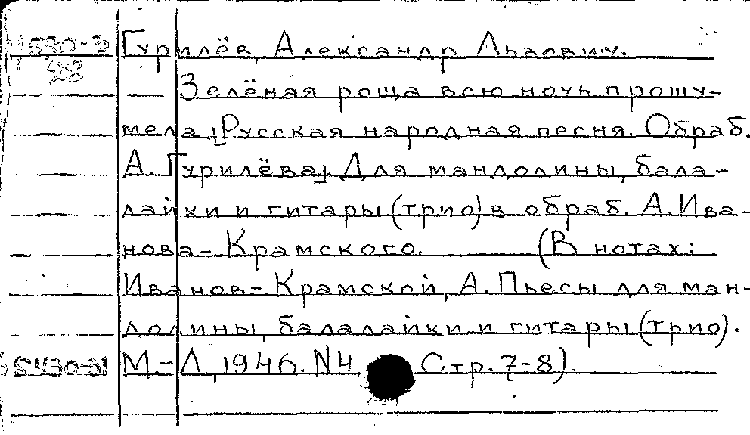 Гурилёв, Александр Львович.
Зелёная роща всю ночь прошу-
мела. [Русская народная песня. Обраб.
А. Гурилёва]. Для мандолины, бала-
лайки и гитары (трио) в обраб. А. Ива-
нова-Крамского. (В нотах:
Иванов-Крамской, А. Пьесы для ман-
долины, балалайки и гитары (трио).
М-Л, 1946. N4 Стр. 7-8).